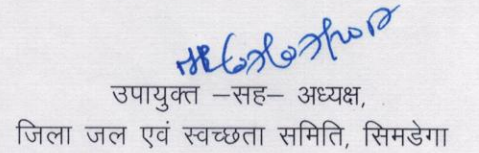 उपायुक्त –सह– अध्यक्ष,
जिला जल एवं स्वच्छता समिति, सिमडेगा